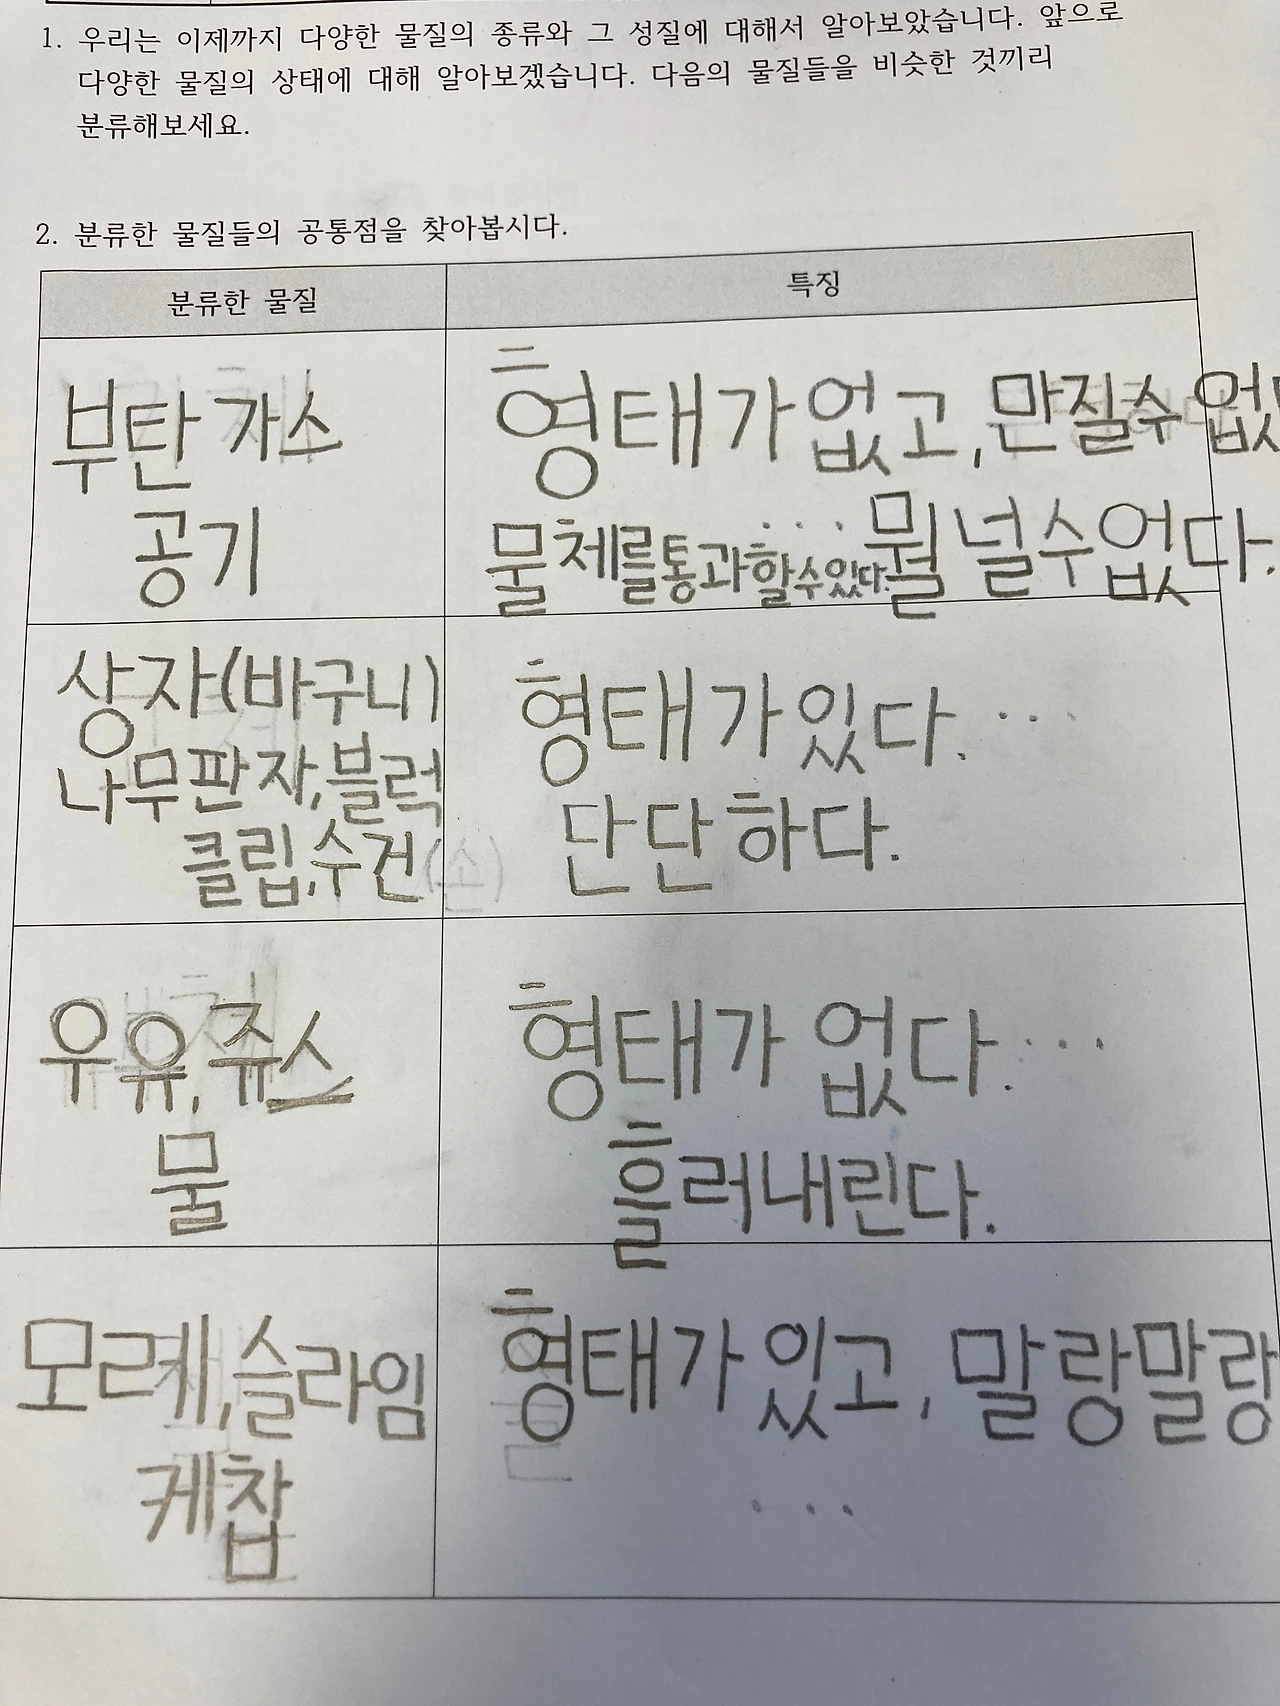 1. 우리는 이제까지 다양한 물질의 종류와 그 성질에 대해서 알아보았습니다. 앞으로
다양한 물질의 상태에 대해 알아보겠습니다. 다음의 물질들을 비슷한 것끼리
분류해보세요.
2. 분류한 물질들의 공통점을 찾아봅시다.
분류한 물질
특징
부탄 가스
공기
형태가 없고, 만질수 없
물체를통과할수있다. ... 뭘 널수없다.
상자(바구니)
나무판자,블럭
클립,수건(손)
형태가 있다. ...
단단하다.
우유,쥬스
물
형태가 없다. ...
흘러내린다.
모레,슬라임
케찹
형태가 있고, 말랑말랑
...